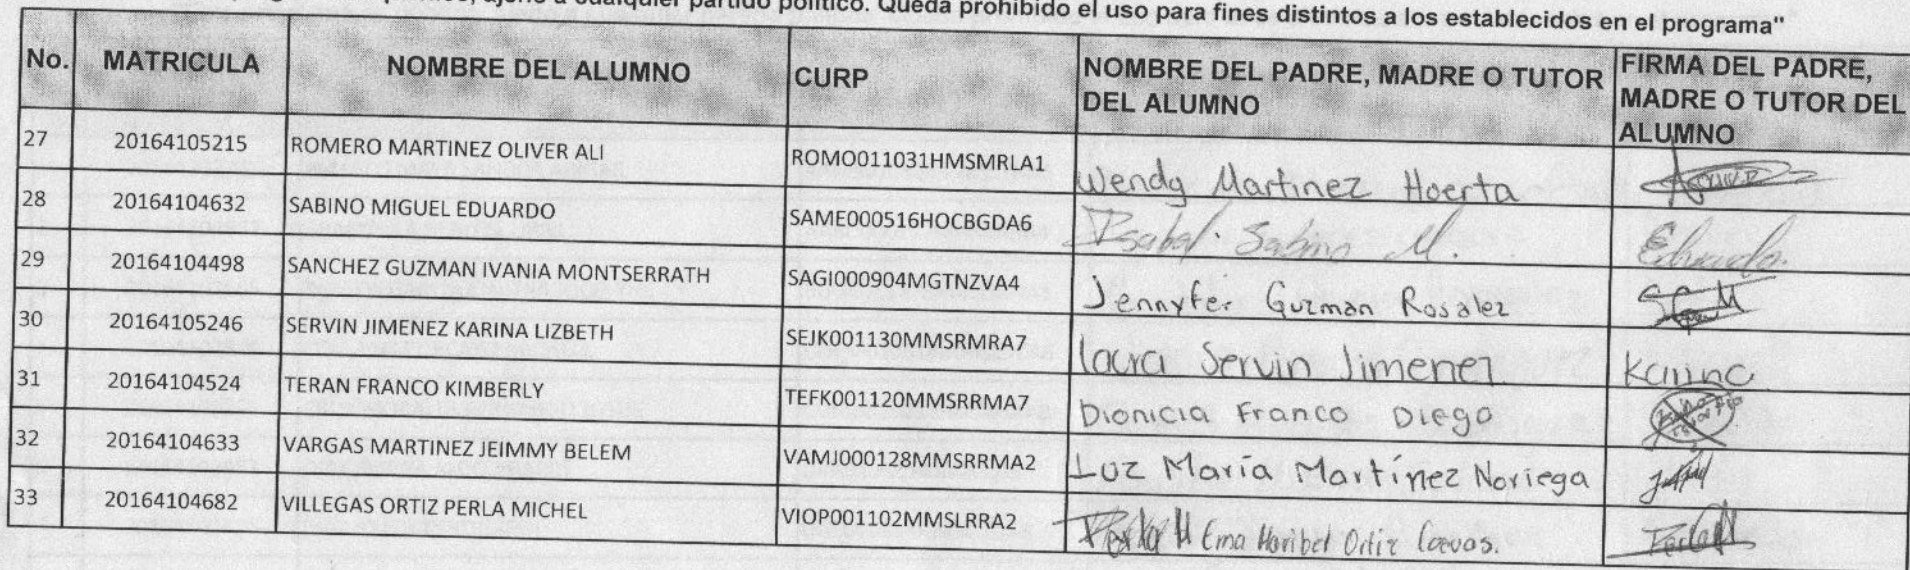 cualquier partido político. Queda prohibido el uso para fines distintos a los establecidos en el programa"
No. MATRICULA NOMBRE DEL ALUMNO CURP NOMBRE DEL PADRE, MADRE O TUTOR DEL ALUMNO FIRMA DEL PADRE, MADRE O TUTOR DEL ALUMNO
27 20164105215 ROMERO MARTINEZ OLIVER ALI ROMO011031HMSMRLA1 Wendy Martinez Hoerta
28 20164104632 SABINO MIGUEL EDUARDO SAME000516HOCBGDA6 Isabal Sabino M. Eduardo
29 20164104498 SANCHEZ GUZMAN IVANIA MONTSERRATH SAGI000904MGTNZVA4 Jennyfer Guzman Rosalez
30 20164105246 SERVIN JIMENEZ KARINA LIZBETH SEJK001130MMSRMRA7 Laura Servin Jimenez Karina
31 20164104524 TERAN FRANCO KIMBERLY TEFK001120MMSRRMA7 Dionicia Franco Diego
32 20164104633 VARGAS MARTINEZ JEIMMY BELEM VAMJ000128MMSRRMA2 Luz María Martínez Noriega
33 20164104682 VILLEGAS ORTIZ PERLA MICHEL VIOP001102MMSLRRA2 Ema Maribel Ortiz Cuevas. PerlaM